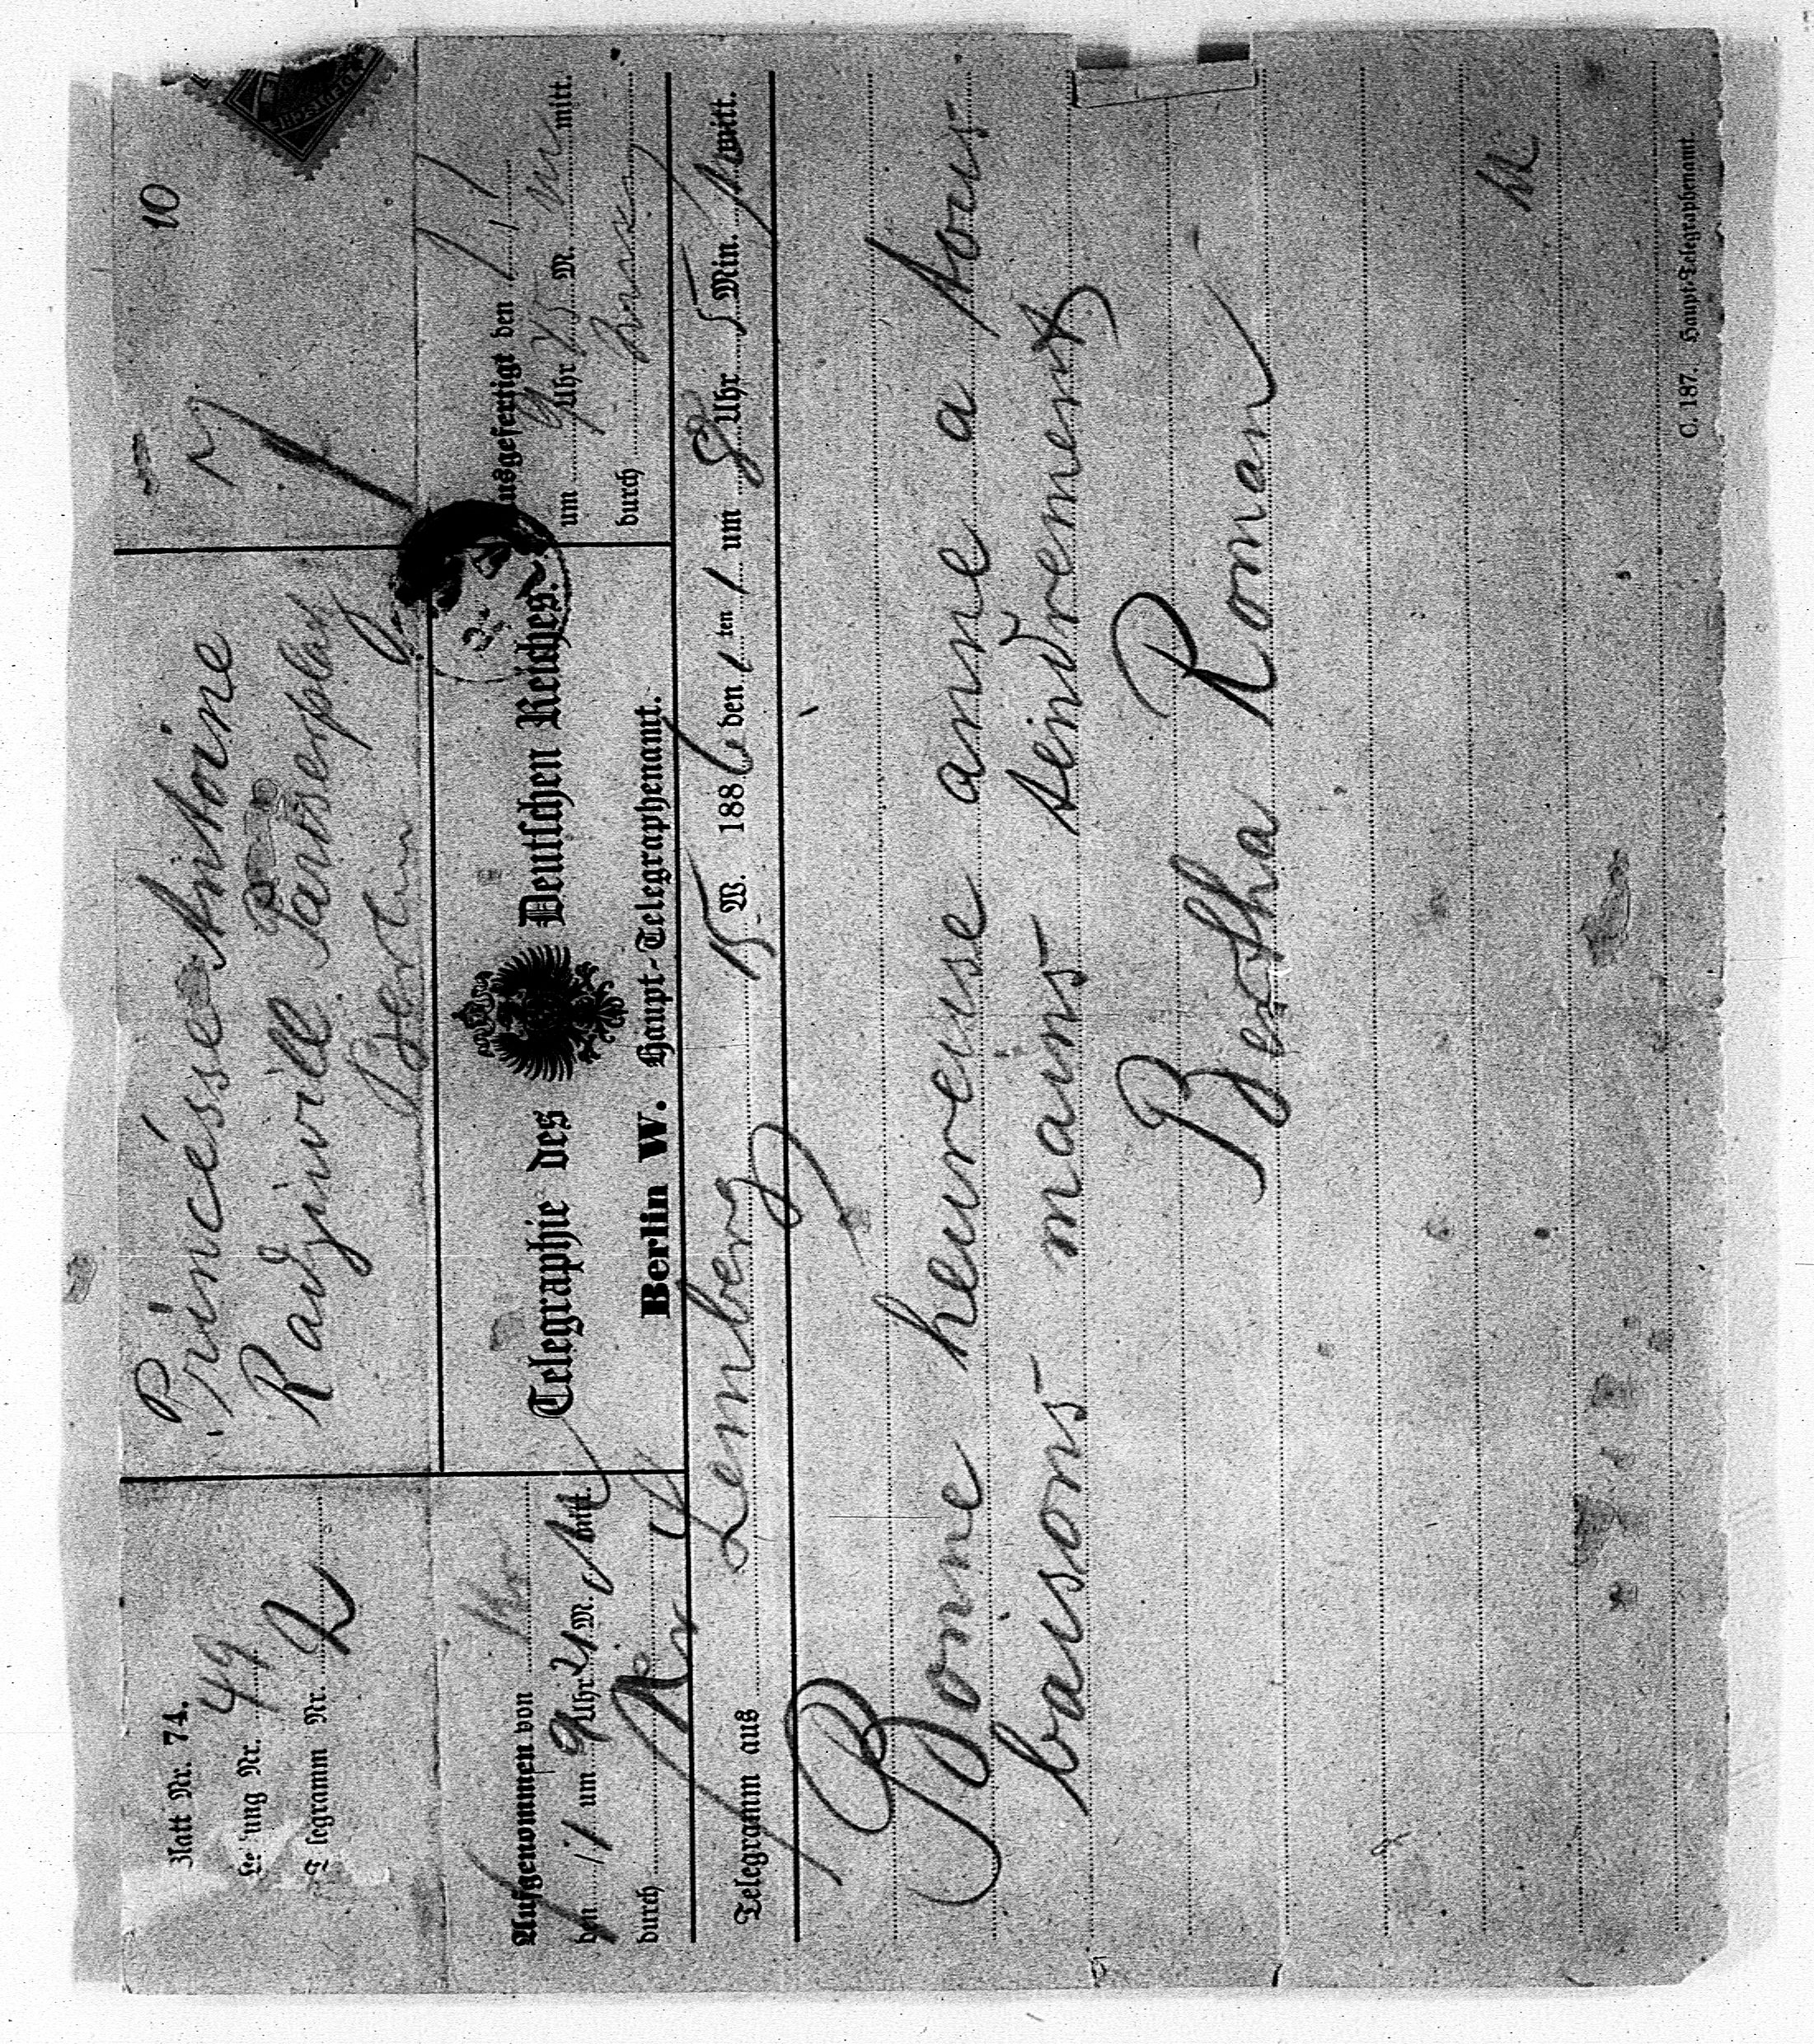 Blatt Nr. 74.
Leitung Nr. 49
Telegramm Nr. 2
Princésse Antoine
Radziwill Pariserplatz
Berlin
10
Aufgenommen von
den 1/1 um 9 Uhr 21 M. mitt.
durch
Telegraphie des Deutschen Reiches.
Berlin W. Haupt-Telegraphenamt.
Ausgefertigt den 1/1
um 9 Uhr 25 M. mitt.
durch
Telegramm aus Lemberg 15 W. 1886 den 1 ten 1 um 8 Uhr 5 Min. mitt.
Bonne heureuse anne a tous
baisons mains teindrement
Bertha Roman
C. 187. Haupt-Telegraphenamt.